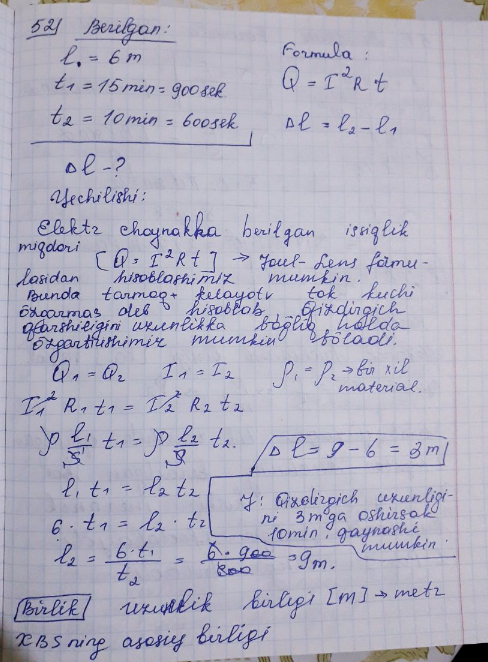 521 Berilgan:
l₁ = 6 m
t₁ = 15 min = 900 sek
t₂ = 10 min = 600 sek
Δl - ?
Formula:
Q = I²R t
Δl = l₂ - l₁
Yechilishi:
Elektr choynakka berilgan issiqlik
miqdori [Q = I²Rt] → Joul-Lens formu-
lasidan hisoblashimiz mumkin.
Bunda tarmoq kelayotv tok kuchi
özgarmas deb hisoblab qizdirgich
qarshiligini uzunlikka bögliq holda
özgartishimiz mumkin böladi.
Q₁ = Q₂ I₁ = I₂ ρ₁ = ρ₂ → bir xil
material.
I₁² R₁ t₁ = I₂² R₂ t₂
ρ l₁/S t₁ = ρ l₂/S t₂.
l₁ t₁ = l₂ t₂
6 · t₁ = l₂ · t₂
l₂ = 6·t₁/t₂ = 6·900/600 = 9m.
Δl = 9 - 6 = 3m
J: Qizdirgich uzunligi-
ni 3m ga oshirsak
10min. qaynashi
mumkin.
Birlik uzunlik birligi [m] → metr
XBS ning asosiy birligi